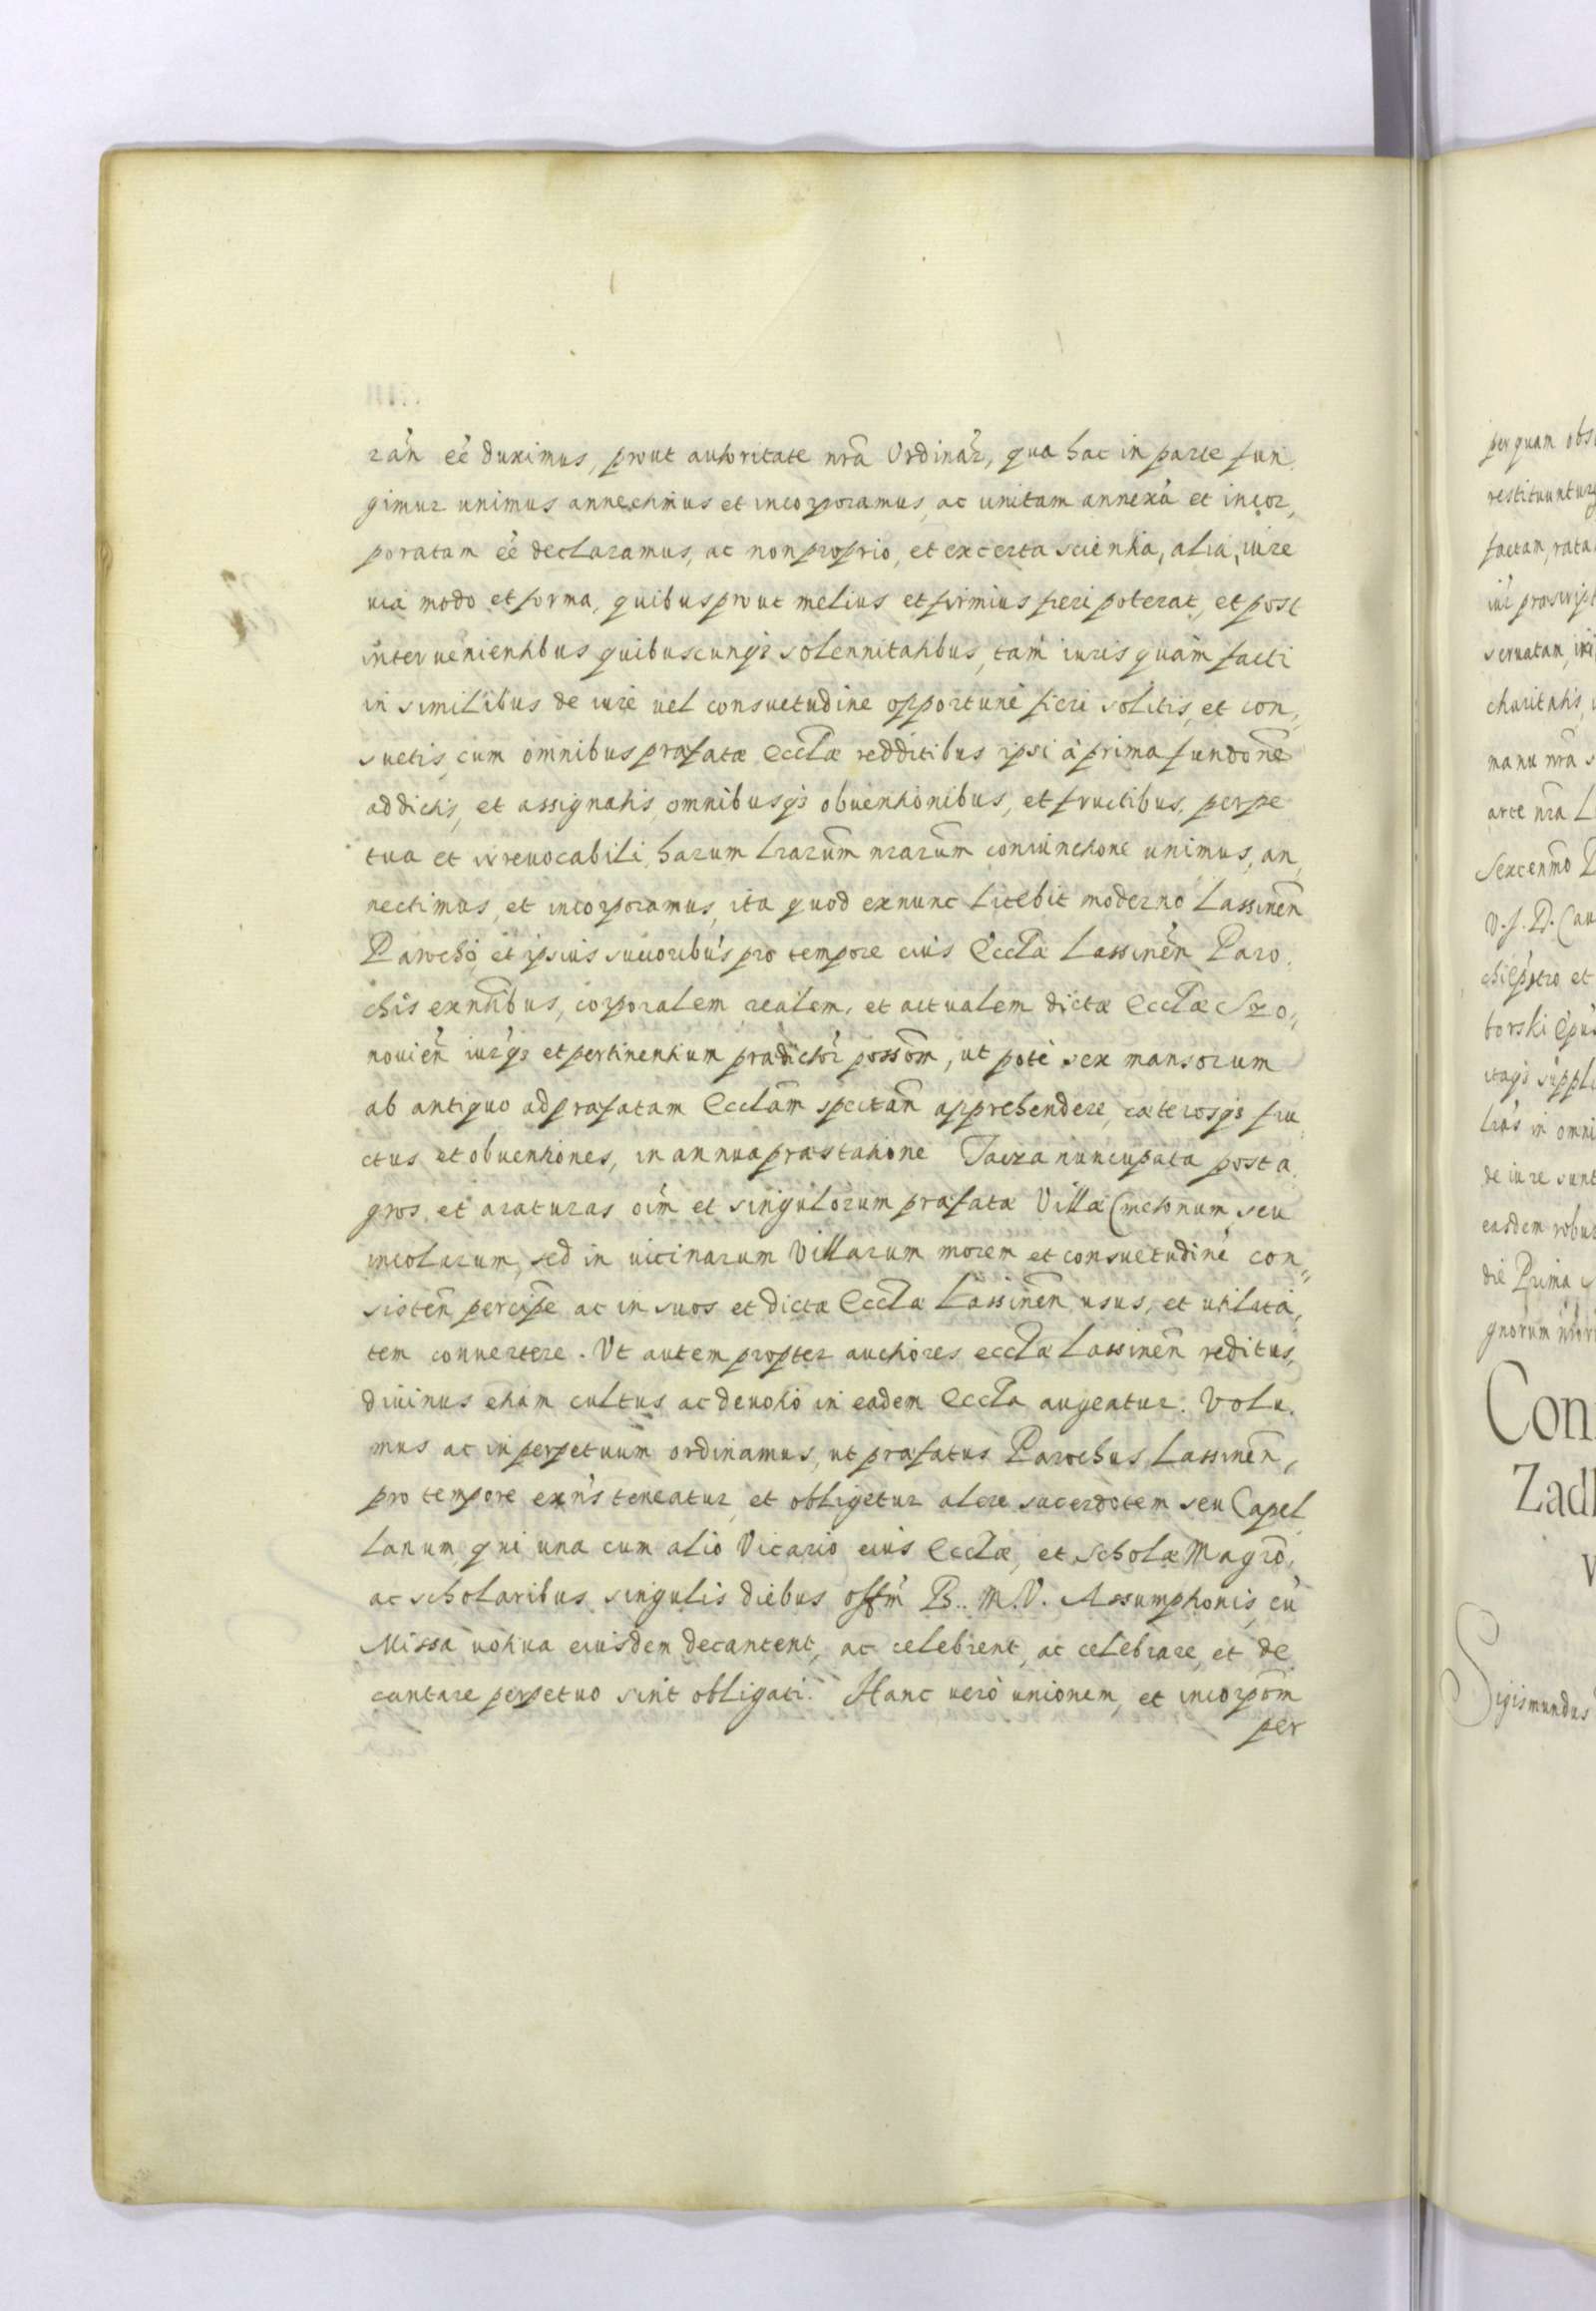 rań eé duximus, prout authoritate nrã Ordinar̃, qua hac in parte fun,
gimur unimus annectimus et incorporamus, ac unitam annexã et incor,
poratam eé declaramus, ac non proprio, et ex certa scientia, alia, iure
uia modo et forma, quibus prout melius et firmius fieri poterat, et post
interuenientibus quibuscunqȝ solennitatibus, tam iuris quàm facti
in similibus de iure uel consuetudine opportune fieri solitis, et con,
suetis, cum omnibus præfatæ Ecclæ redditibus ipsi à prima fundoñe
addictis, et assignatis, omnibusqȝ obuentionibus, et fructibus, perpe
tua et irreuocabili, harum lrarum̃ nrarum̃ coniunctione unimus, an,
nectimus, et incorporamus, ita quod ex nunc licebit moderno Lassineñ
Parocho, et ipsius succoribus pro tempore eius Eccła Lassineñ Paro,
chis exntibus, corporalem realem, et actualem dictæ Ecclæ Szo,,
nouień iurqȝ et pertinentium prædictor̃ possom̃, ut pote sex mansorum
ab antiquo ad præfatam Ecclam̃ spectań apprehendere, cæterosqȝ fru,
ctus et obuentiones, in annua præstatione Tacza nuncupata post a,
gros et araturas oim̃ et singulorum præfatæ Villæ Cmetonum, seu
incolarum, sed in uicinarum Villarum morem et consuetudine con,,
sisteñ perciṕe ac in suos et dictæ Ecclæ Lassineñ usus, et utilita,
tem conuertere. Vt autem propter auctiores ecclæ Lassineñ reditus,
diuinus etiam cultus ac deuotio in eadem Eccla augeatur. Volu,
mus ac in perpetuum ordinamus, ut præfatus Parochus Lassineñ,
pro tempore exñs teneatur, et obligetur alere sacerdotem seu Capel,
lanum, qui una cum alio Vicario eius Ecclæ, et Scholæ Magro,
ac scholaribus singulis diebus offm̃ B. M. V. Assumptionis, cũ
Missa uotiua eiusdem decantent, ac celebrent, ac celebrare, et de
cantare perpetuo sint obligati. Hanc uerò unionem, et incorpom̃
per
per quam obs
restituuntur
factam, rata
seruatam, iri
charitatis,
manu nrã s
arte nrã L
Sexcenmo D
V. J. D. Can
chiep̃tro et
borski Ep̃us
itaqȝ suppli
lrãs in omni
de iure sunt
easdem robu
die Prima s
gnorum nror
Con
Zadl
V
Sigismundus